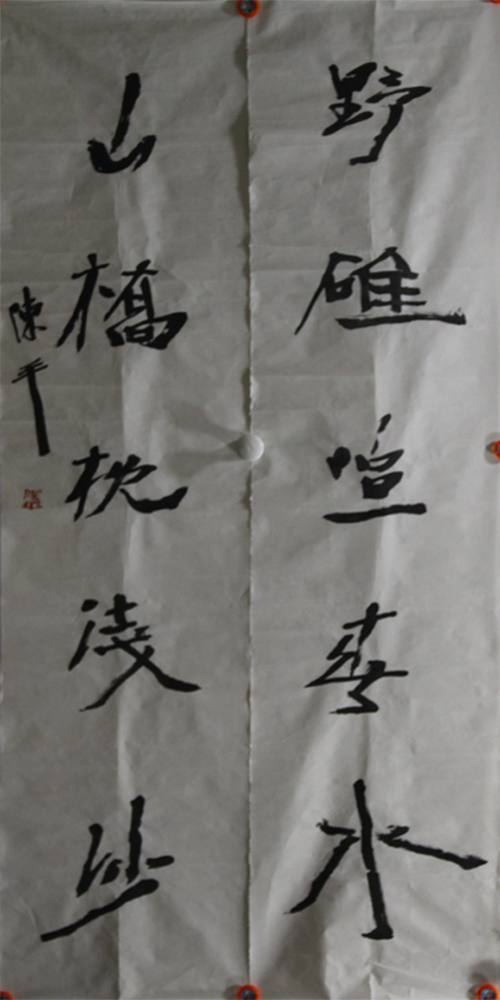 野碓喧春水
山橋枕淺沙
陳平